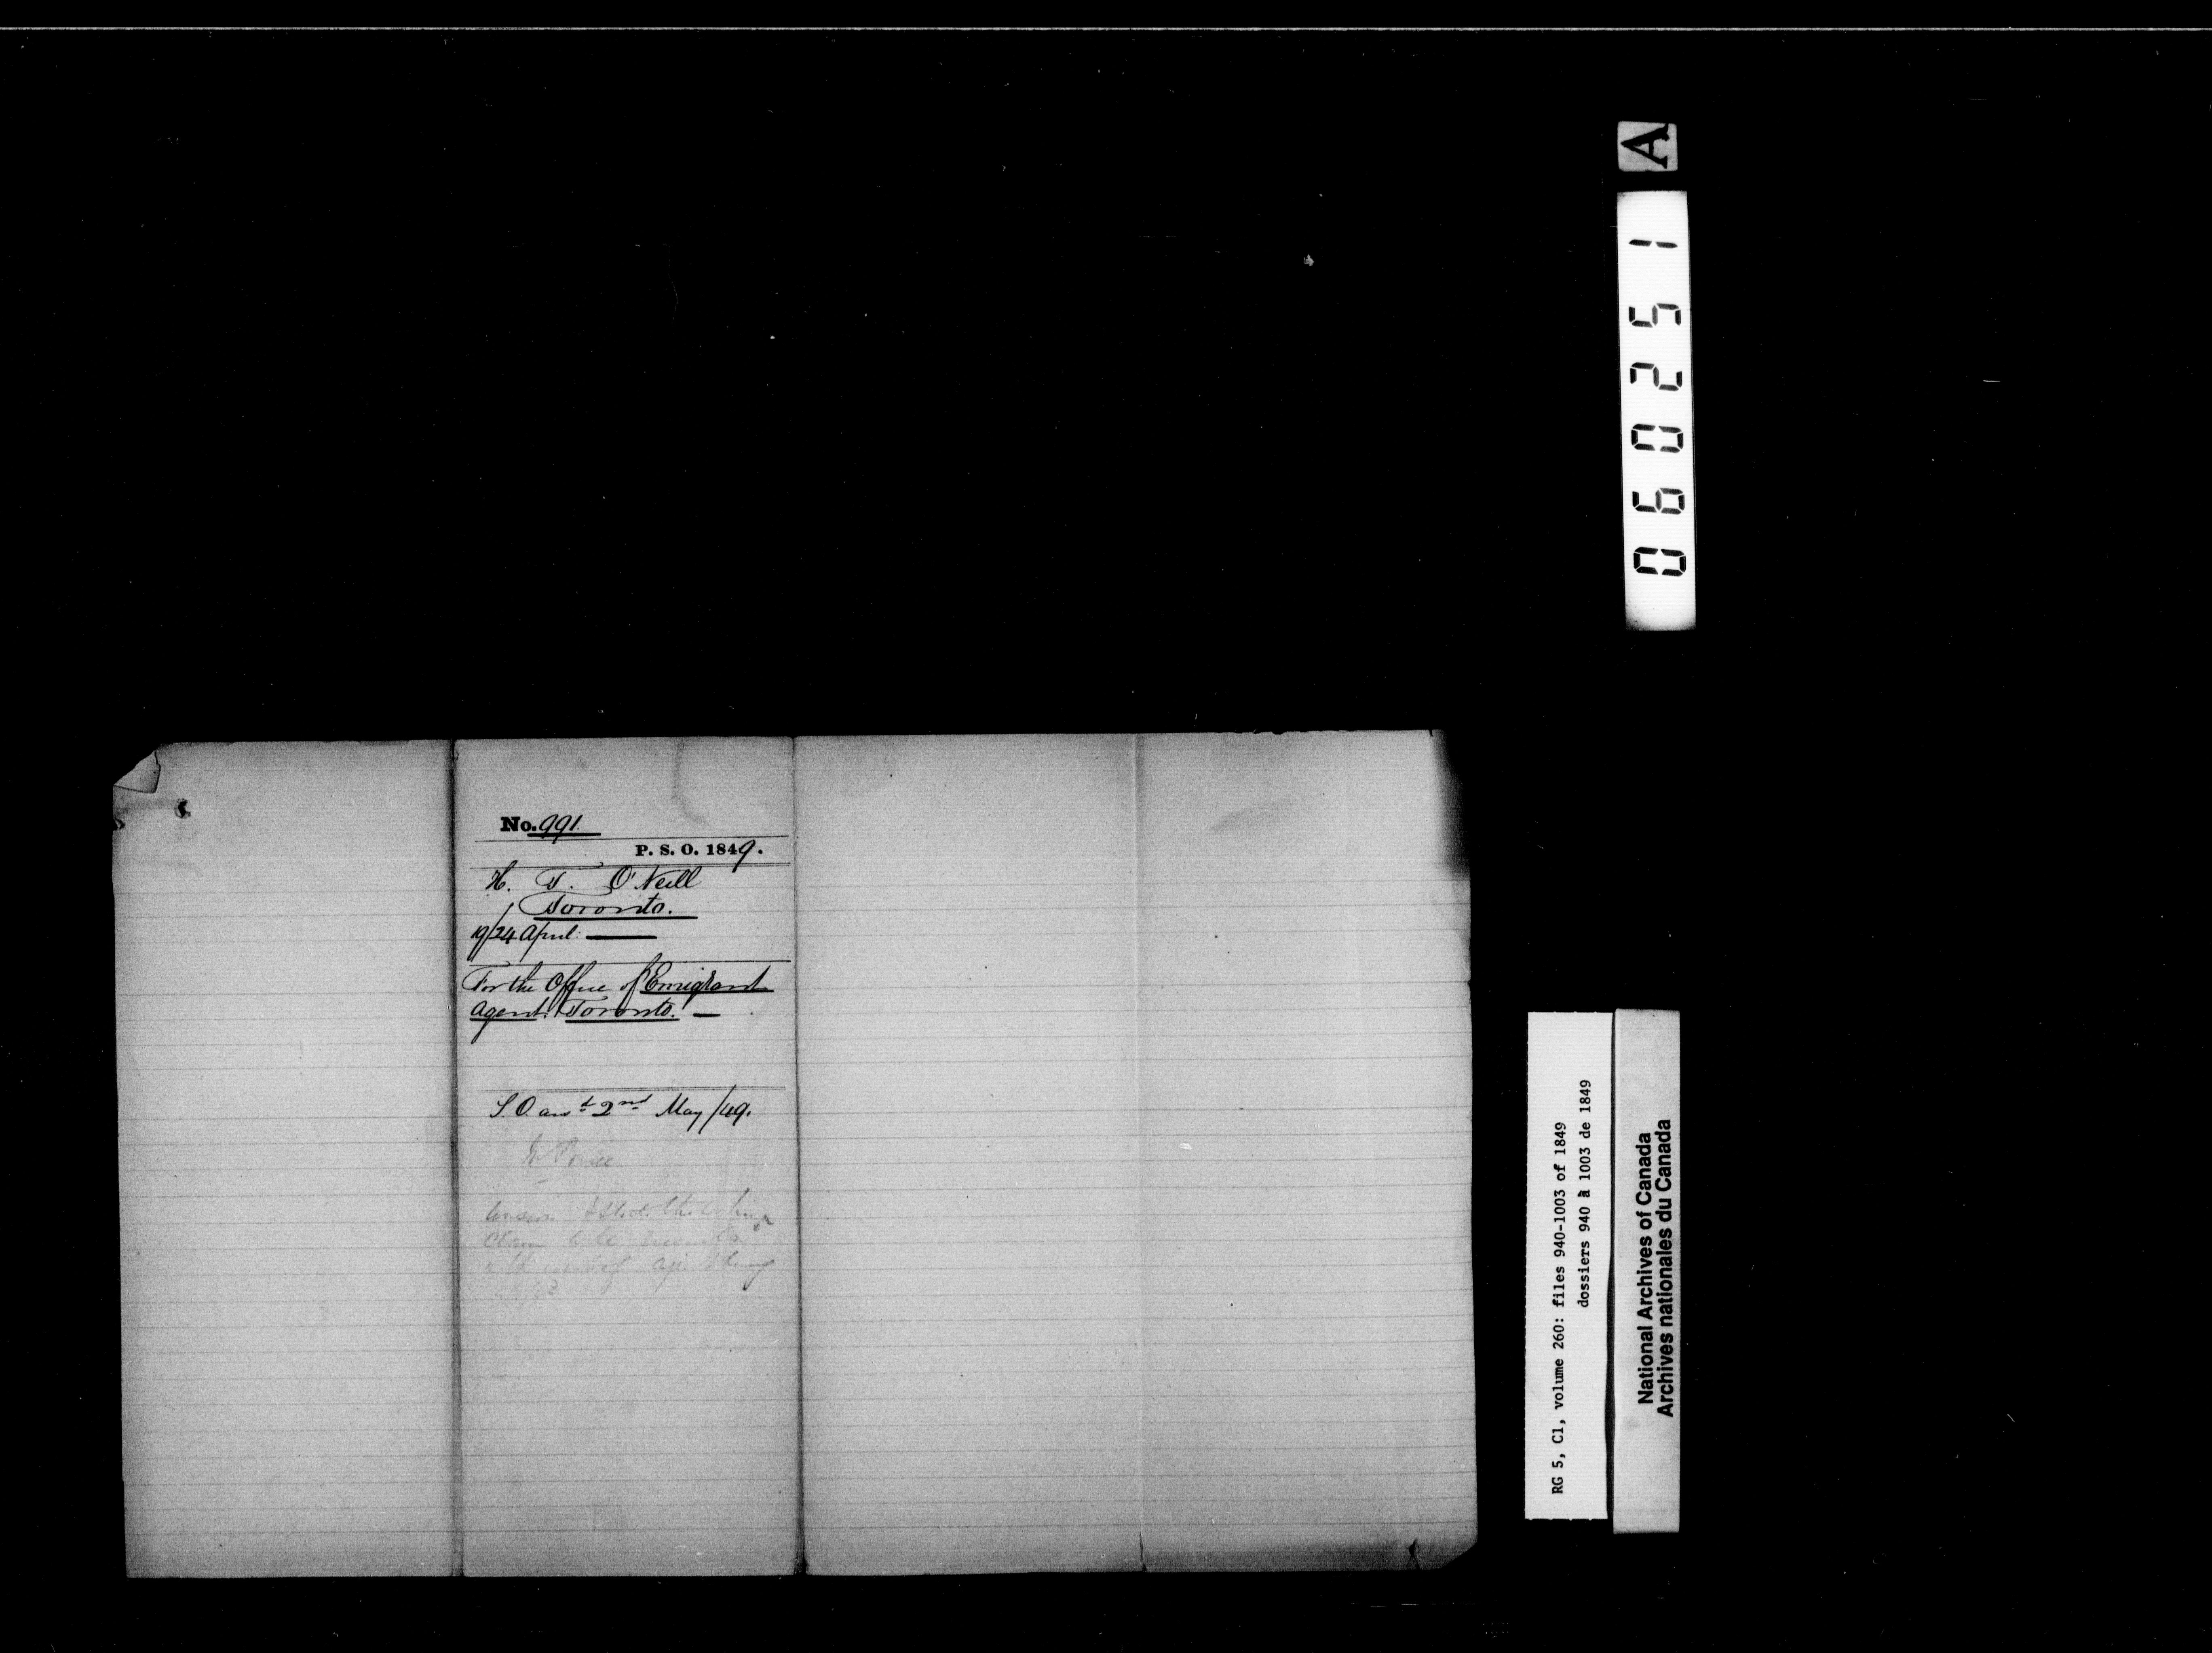 No. 991.
P. S. O. 1849.
H. T. O'Neill
Toronto.
19/24 April: —
For the Office of Emigrant
Agent. Toronto. —
S.O. ansd 2nd May/49.
A
060251
RG 5, C1, volume 260: files 940-1003 of 1849
dossiers 940 à 1003 de 1849
National Archives of Canada
Archives nationales du Canada